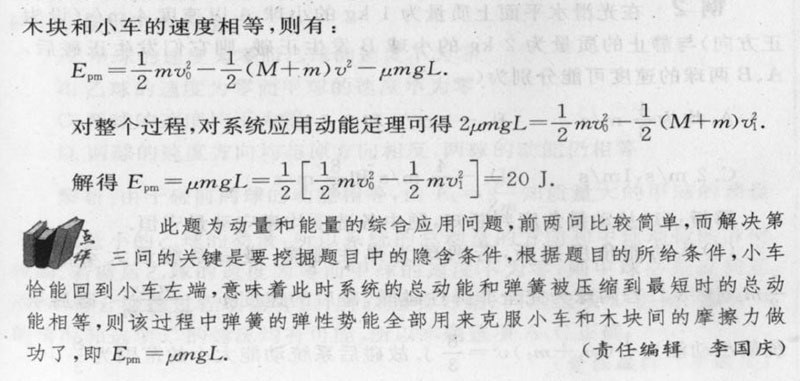 木块和小车的速度相等,则有:
E_pm=1/2 mv₀²-1/2 (M+m)v²-μmgL.
对整个过程,对系统应用动能定理可得 2μmgL=1/2 mv₀²-1/2 (M+m)v₁².
解得 E_pm=μmgL=1/2 [1/2 mv₀²-1/2 mv₁²]=20 J.
点评 此题为动量和能量的综合应用问题,前两问比较简单,而解决第
三问的关键是要挖掘题目中的隐含条件,根据题目的所给条件,小车
恰能回到小车左端,意味着此时系统的总动能和弹簧被压缩到最短时的总动
能相等,则该过程中弹簧的弹性势能全部用来克服小车和木块间的摩擦力做
功了,即 E_pm=μmgL. (责任编辑 李国庆)